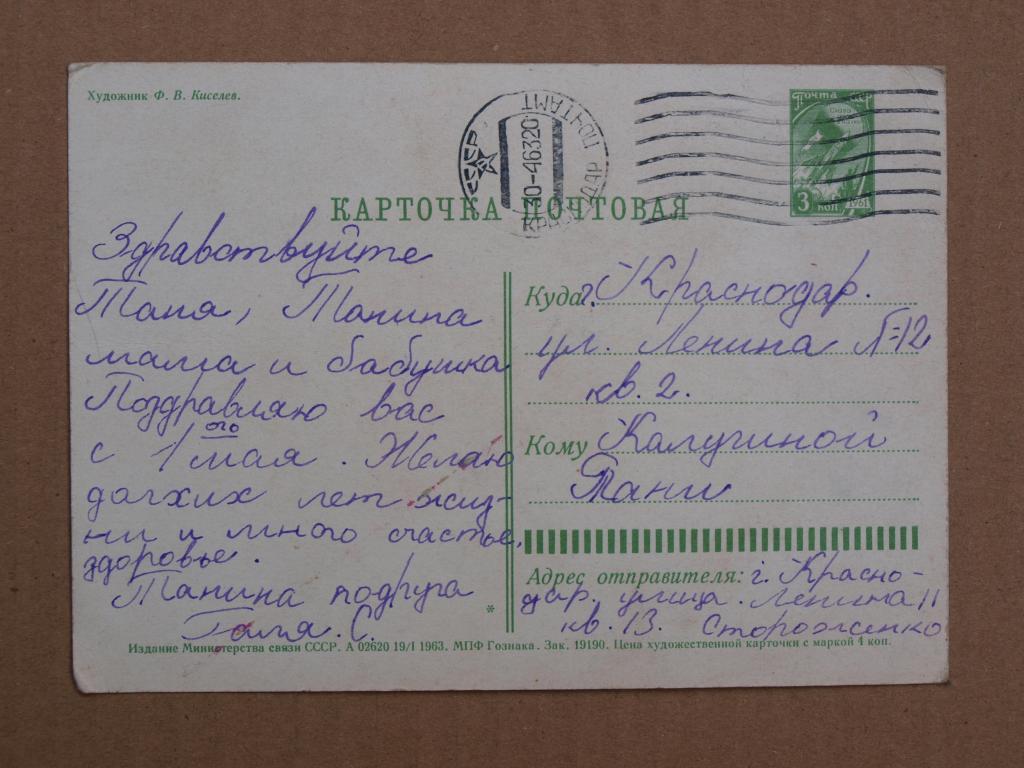 Художник Ф. В. Киселев.
СССР
30-46320
КРАСНОДАР ПОЧТАМТ
3 коп
1961
КАРТОЧКА ПОЧТОВАЯ
Здравствуйте
Таня, Танина
мама и бабушка
Поздравляю вас
с 1ого мая. Желаю
долхих лет жиз-
ни и много счастье,
здоровье.
Танина подруга
Галя. С.
Куда г. Краснодар.
ул. Ленина Л-12
кв. 2.
Кому Калугиной
Тани
Адрес отправителя: г. Красно-
дар. улица. Ленина 11
кв. 13. Стороженко
*
Издание Министерства связи СССР. А 02620 19/I 1963. МПФ Гознака. Зак. 19190. Цена художественной карточки с маркой 4 коп.